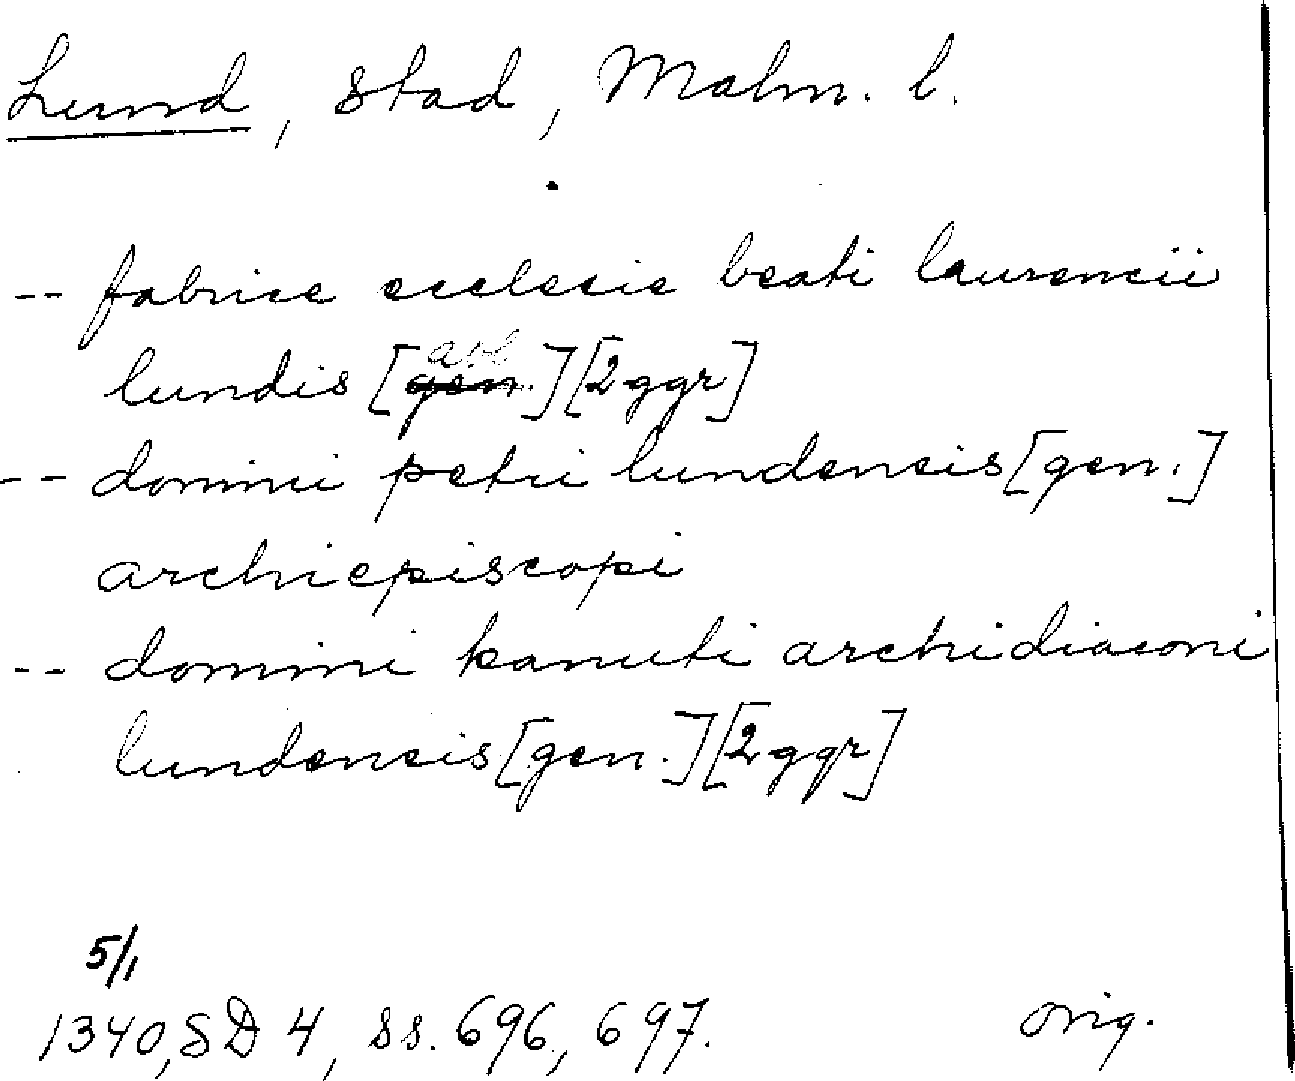 Lund, stad, Malm. l.
-- fabrice ecclesie beati laurencii
abl
lundis [gen.][2 ggr]
-- domini petri lundensis [gen.]
archiepiscopi
-- domini kanuti archidiaconi
lundensis [gen.][2 ggr]
5/1
1340, SD 4, ss. 696, 697. orig.